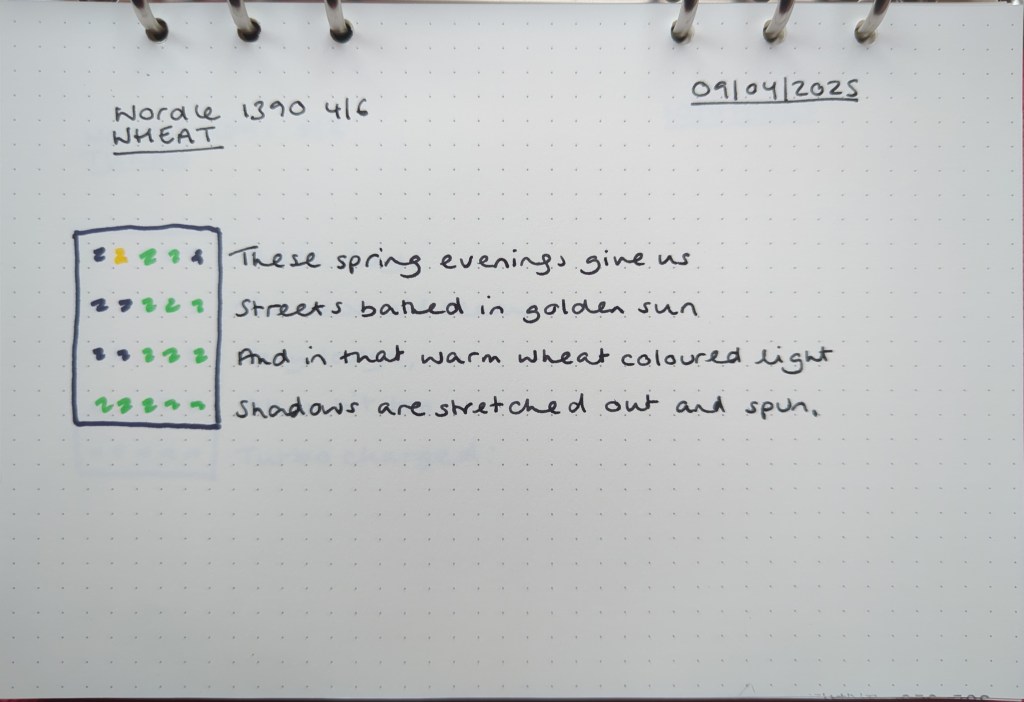 Wordle 1390 4/6
09/04/2025
WHEAT
These spring evenings give us
Streets bathed in golden sun
And in that warm wheat coloured light
Shadows are stretched out and spun.
Turbo charged